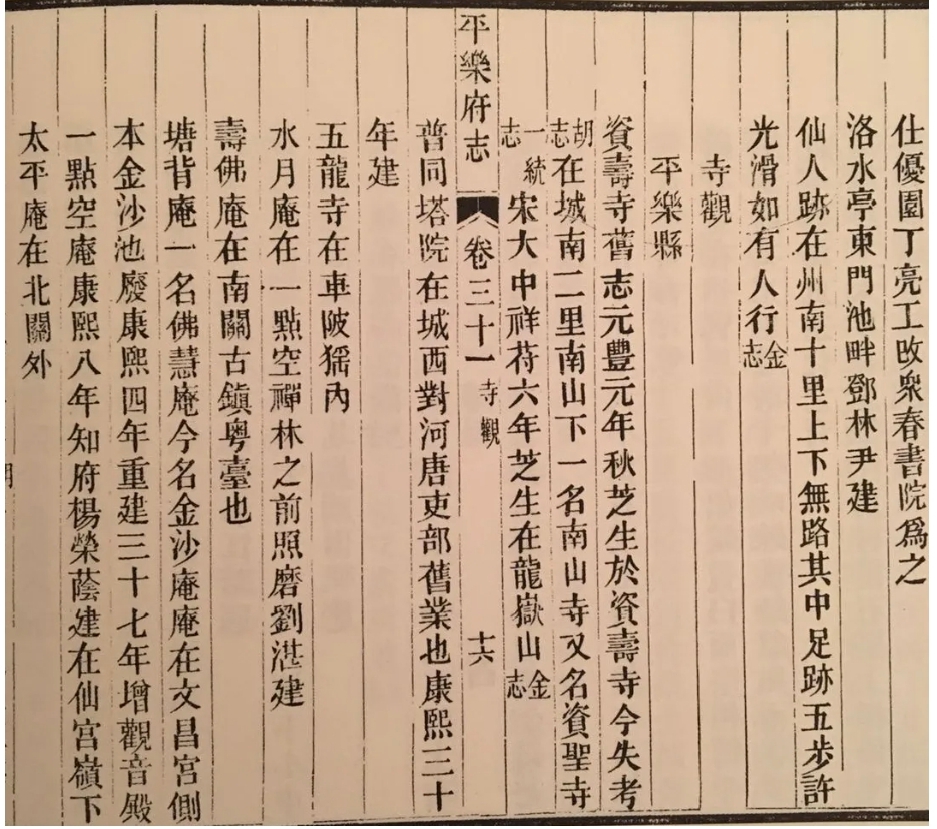 仕優園丁亮工改衆春書院爲之
洛水亭東門池畔鄧林尹建
仙人跡在州南十里上下無路其中足跡五步許
光滑如有人行金志
寺觀
平樂縣
資壽寺舊志元豐元年秋芝生於資壽寺今失考
胡志在城南二里南山下一名南山寺又名資聖寺
一統志宋大中祥苻六年芝生在龍嶽山金志
平樂府志 卷三十一 寺觀 十六
普同塔院在城西對河唐吏部舊業也康熙三十
年建
五龍寺在車陂猺內
水月庵在一點空禪林之前照磨劉湛建
壽佛庵在南關古鎮粤臺也
塘背庵一名佛慧庵今名金沙庵庵在文昌宮側
本金沙池廢康熙四年重建三十七年增觀音殿
一點空庵康熙八年知府楊榮蔭建在仙宮嶺下
太平庵在北關外